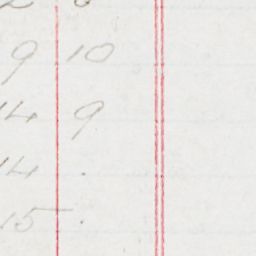 9 10
14 9
14 .
15 .